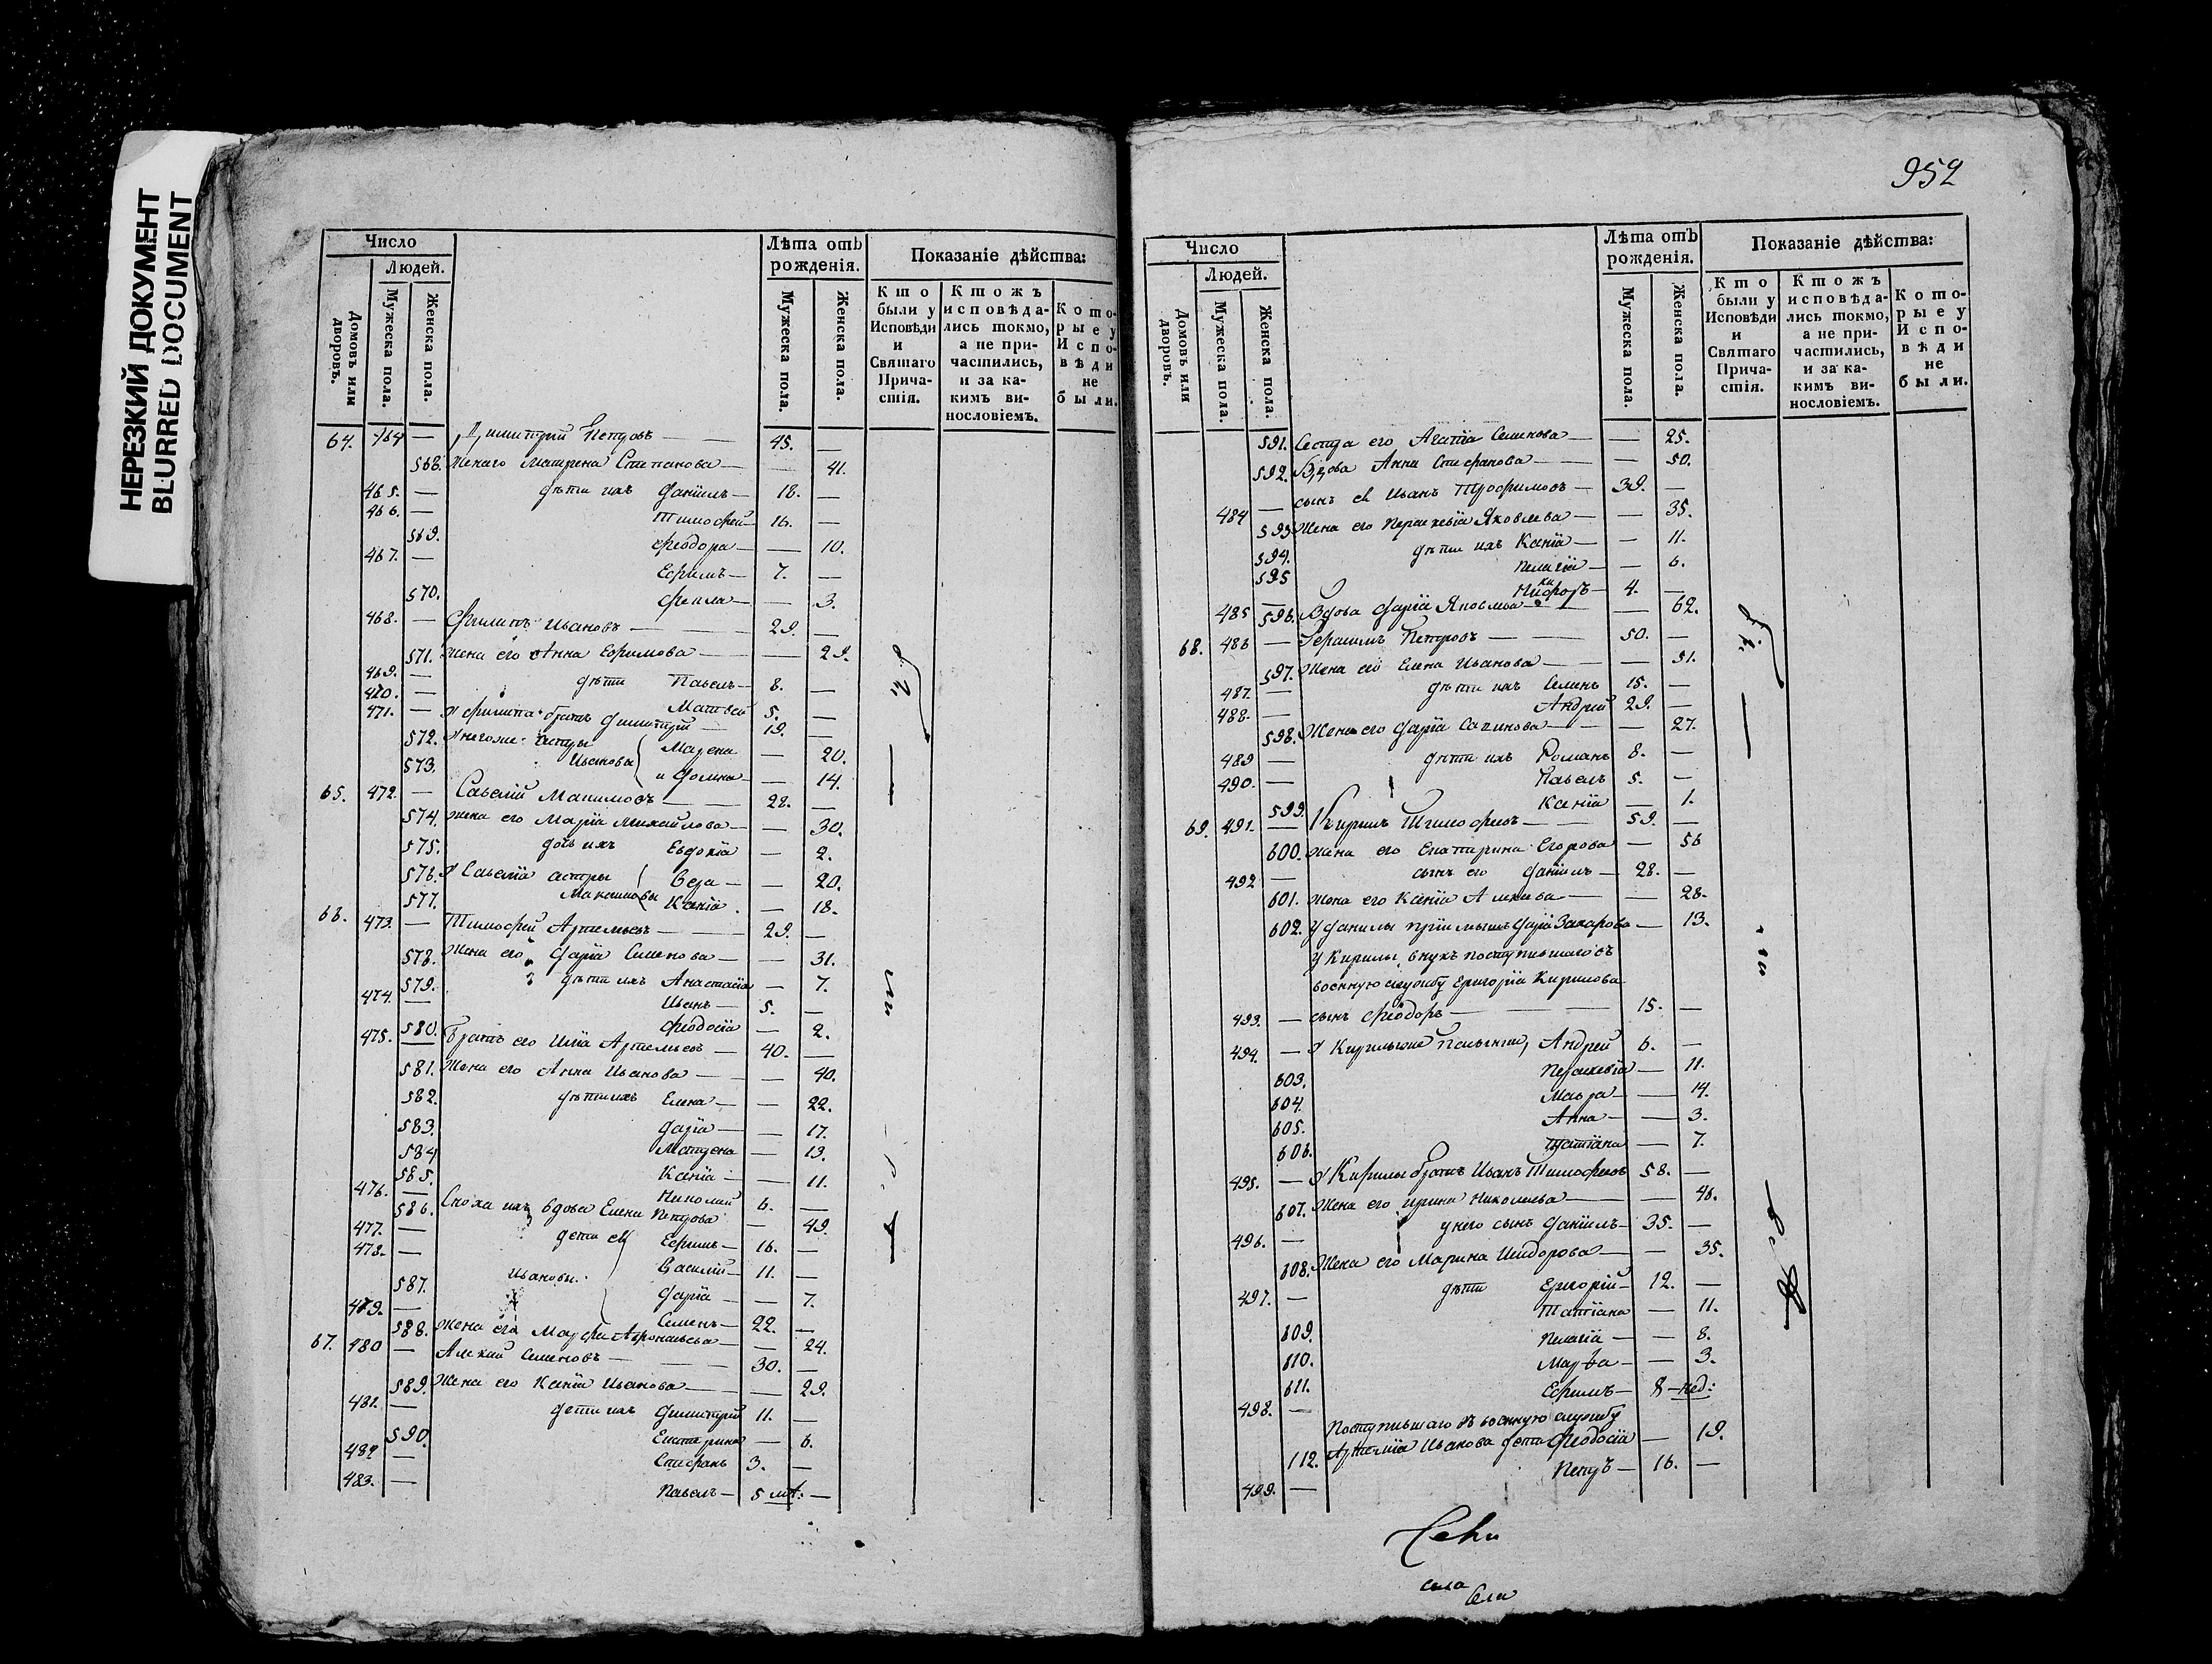 НЕРЕЗКИЙ ДОКУМЕНТ
BLURRED DOCUMENT
Число
Людей.
Домовъ или дворовъ.
Мужеска пола.
Женска пола.
Лѣта отъ рожденія.
Мужеска пола.
Женска пола.
Показаніе дѣйства:
Кто были у Исповѣди и Святаго Причастія.
Ктожъ исповѣдались токмо, а не причастились, и за какимъ винословіемъ.
Которые у Исповѣди не были.
64. 464 — Димитрій Петровъ — 45. —
568. Жена его Матрена Степанова — — 41.
465. — дѣти ихъ Даніилъ — 18. —
466. — Тимофей — 16. —
569. Феодора — — 10.
467. — Ефимъ — 7. —
570. Фекла — — 3.
468. — Филипъ Ивановъ — 29. —
571. Жена его Анна Ефимова — — 29.
469. — дѣти Павелъ — 8. —
470. — Матвей 5. —
471. — У Филипа братъ Димитрій — 19. —
572. У негоже сестры Марена — 20.
573. Ивановы и Домна — — 14.
65. 472. — Савелій Максимовъ — 28. —
574. Жена его Марія Михайлова — — 30.
575. дочь ихъ Евдокія — 2.
576. У Савелія сестры Вера — — 20.
577. Максимовы Ксенія — 18.
66. 473. — Тимофей Артемьевъ — 29. —
578. Жена его Дарія Семенова — — 31.
579. дѣти ихъ Анастасія — 7.
474. — Иванъ — 5. —
580. Феодосія — 2.
475. — Братъ его Илія Артемьевъ — 40. —
581. Жена его Анна Иванова — — 40.
582. дѣти ихъ Елена — — 22.
583. Дарія — — 17.
584 Матрена — 13.
585. Ксенія — — 11.
476. — Николай 6. —
586. Сноха ихъ вдова Елена Петрова — 49.
477. — дети ея Ефимъ — 16. —
478. — Василій — 11. —
587. Ивановы: Дарія — — 7.
479. — Семенъ — 22. —
588. Жена его Марфа Афонасьева — — 24.
67. 480 — Алексей Семеновъ — 30. —
589. Жена его Ксенія Иванова — — 29.
481. — дети ихъ Димитрій 11. —
590. Екатерина — 6.
482 — Стефанъ 3. —
483. — Павелъ — 5 мѣ. —
952
Число
Людей.
Домовъ или дворовъ.
Мужеска пола.
Женска пола.
Лѣта отъ рожденія.
Мужеска пола.
Женска пола.
Показаніе дѣйства:
Кто были у Исповѣди и Святаго Причастія.
Ктожъ исповѣдались токмо, а не причастились, и за какимъ винословіемъ.
Которые у Исповѣди не были.
591. Сестра его Агапія Семенова — — 25.
592. Вдова Анна Стефанова — — 50.
484 — сынъ ея Иванъ Трофимовъ — 39. —
593 Жена его Параскевія Яковлева — — 35.
594. дѣти ихъ Ксенія — — 11.
595 Пелагія — — 6.
485 — Никифоръ — 4. —
596. Вдова Дарія Яковлева — — 62.
68. 486 — Герасимъ Петровъ — 50. —
597. Жена его Елена Иванова — — 51.
487. — дѣти ихъ Семенъ 15. —
488. — Андрей 29. —
598. Жена его Дарія — — 27.
489 — дѣти ихъ Романъ 8. —
490. — Павелъ 5. —
599. Ксенія — 1.
69. 491. — Кирилъ Тимофеевъ — 59. —
600. Жена его Екатерина Егорова — 56
492 — сынъ его Даніилъ — 28. —
601. Жена его Ксенія Алексеева — — 28.
602. У Данилы пріемышъ Дарія Захарова — 13.
У Кирилы внукъ поступившаго въ
военную службу Григорія Кирилова
493. — сынъ Феодоръ — 15. —
494. — У Кирилы же Андрей 6. —
603. Параскевія — 11.
604. Мавра — — 14.
605. Анна — — 3.
606. Татіана — 7.
495. — У Кирилы братъ Иванъ Тимофеевъ 58. —
607. Жена его Ирина Николаева — — 46.
496. — у него сынъ Даніилъ — 35. —
608. Жена его Марина Исидорова — — 35.
497. — дѣти Григорій — 12. —
609. Татіана — 11.
610. Пелагія — — 8.
611. Марѳа — — 3.
498. — Ефимъ — 8 — нед:
Поступившаго въ военную службу
112. Артемія Иванова дети Феодосія — 19.
499. — Петръ — 16. —
села